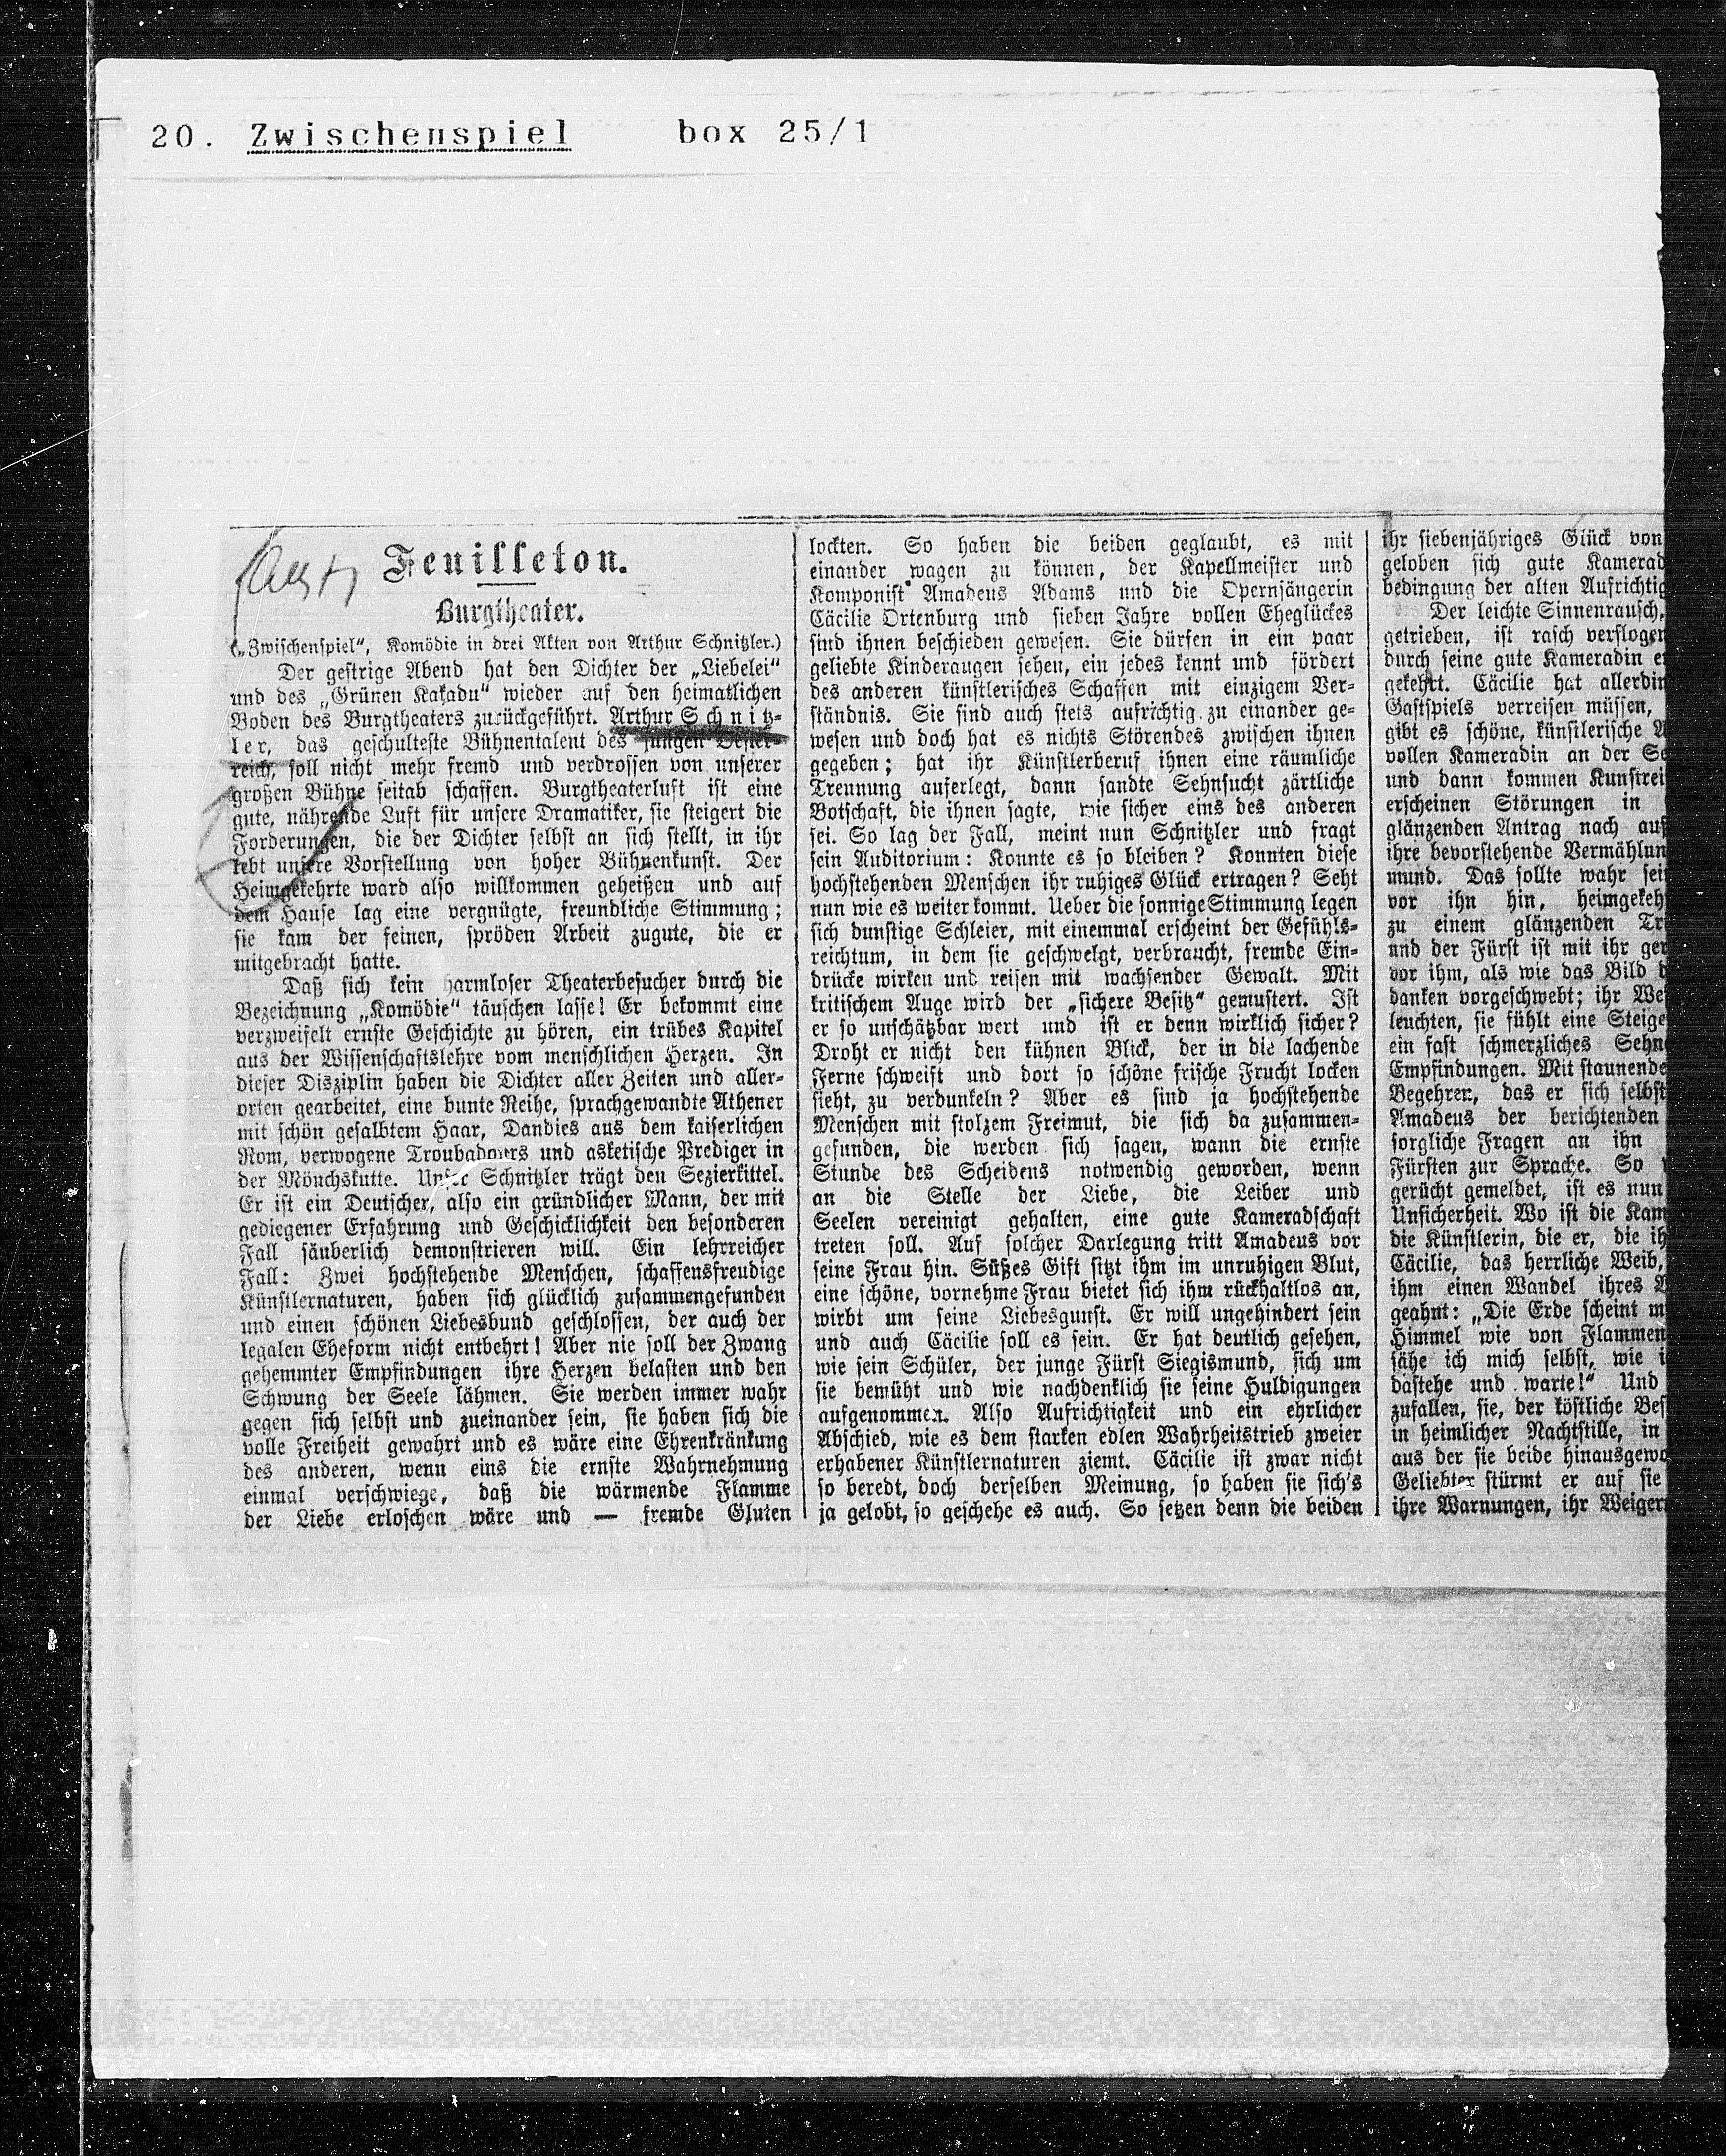 20. Zwischenspiel box 25/1
Feuilleton.
Burgtheater.
(„Zwischenspiel“, Komödie in drei Akten von Arthur Schnitzler.)
Der gestrige Abend hat den Dichter der „Liebelei“
und des „Grünen Kakadu“ wieder auf den heimatlichen
Boden des Burgtheaters zurückgeführt. Arthur Schnitz-
ler, das geschulteste Bühnentalent des jungen Oester-
reich, soll nicht mehr fremd und verdrossen von unserer
großen Bühne seitab schaffen. Burgtheaterluft ist eine
gute, nährende Luft für unsere Dramatiker, sie steigert die
Forderungen, die der Dichter selbst an sich stellt, in ihr
lebt unsere Vorstellung von hoher Bühnenkunst. Der
Heimgekehrte ward also willkommen geheißen und auf
dem Hause lag eine vergnügte, freundliche Stimmung;
sie kam der feinen, spröden Arbeit zugute, die er
mitgebracht hatte.
Daß sich kein harmloser Theaterbesucher durch die
Bezeichnung „Komödie“ täuschen lasse! Er bekommt eine
verzweifelt ernste Geschichte zu hören, ein trübes Kapitel
aus der Wissenschaftslehre vom menschlichen Herzen. In
dieser Disziplin haben die Dichter aller Zeiten und aller-
orten gearbeitet, eine bunte Reihe, sprachgewandte Athener
mit schön gesalbtem Haar, Dandies aus dem kaiserlichen
Rom, verwogene Troubadours und asketische Prediger in
der Mönchskutte. Unser Schnitzler trägt den Sezierkittel.
Er ist ein Deutscher, also ein gründlicher Mann, der mit
gediegener Erfahrung und Geschicklichkeit den besonderen
Fall säuberlich demonstrieren will. Ein lehrreicher
Fall: Zwei hochstehende Menschen, schaffensfreudige
Künstlernaturen, haben sich glücklich zusammengefunden
und einen schönen Liebesbund geschlossen, der auch der
legalen Eheform nicht entbehrt! Aber nie soll der Zwang
gehemmter Empfindungen ihre Herzen belasten und den
Schwung der Seele lähmen. Sie werden immer wahr
gegen sich selbst und zueinander sein, sie haben sich die
volle Freiheit gewahrt und es wäre eine Ehrenkränkung
des anderen, wenn eins die ernste Wahrnehmung
einmal verschwiege, daß die wärmende Flamme
der Liebe erloschen wäre und — fremde Gluten
lockten. So haben die beiden geglaubt, es mit
einander wagen zu können, der Kapellmeister und
Komponist Amadeus Adams und die Opernsängerin
Cäcilie Ortenburg und sieben Jahre vollen Eheglückes
sind ihnen beschieden gewesen. Sie dürfen in ein paar
geliebte Kinderaugen sehen, ein jedes kennt und fördert
des anderen künstlerisches Schaffen mit einzigem Ver-
ständnis. Sie sind auch stets aufrichtig zu einander ge-
wesen und doch hat es nichts Störendes zwischen ihnen
gegeben; hat ihr Künstlerberuf ihnen eine räumliche
Trennung auferlegt, dann sandte Sehnsucht zärtliche
Botschaft, die ihnen sagte, wie sicher eins des anderen
sei. So lag der Fall, meint nun Schnitzler und fragt
sein Auditorium: Konnte es so bleiben? Konnten diese
hochstehenden Menschen ihr ruhiges Glück ertragen? Seht
nun wie es weiter kommt. Ueber die sonnige Stimmung legen
sich dunstige Schleier, mit einemmal erscheint der Gefühls-
reichtum, in dem sie geschwelgt, verbraucht, fremde Ein-
drücke wirken und reisen mit wachsender Gewalt. Mit
kritischem Auge wird der „sichere Besitz“ gemustert. Ist
er so unschätzbar wert und ist er denn wirklich sicher?
Droht er nicht den kühnen Blick, der in die lachende
Ferne schweift und dort so schöne frische Frucht locken
sieht, zu verdunkeln? Aber es sind ja hochstehende
Menschen mit stolzem Freimut, die sich da zusammen-
gefunden, die werden sich sagen, wann die ernste
Stunde des Scheidens notwendig geworden, wenn
an die Stelle der Liebe, die Leiber und
Seelen vereinigt gehalten, eine gute Kameradschaft
treten soll. Auf solcher Darlegung tritt Amadeus vor
seine Frau hin. Süßes Gift sitzt ihm im unruhigen Blut,
eine schöne, vornehme Frau bietet sich ihm rückhaltlos an,
wirbt um seine Liebesgunst. Er will ungehindert sein
und auch Cäcilie soll es sein. Er hat deutlich gesehen,
wie sein Schüler, der junge Fürst Siegismund, sich um
sie bemüht und wie nachdenklich sie seine Huldigungen
aufgenommen. Also Aufrichtigkeit und ein ehrlicher
Abschied, wie es dem starken edlen Wahrheitstrieb zweier
erhabener Künstlernaturen ziemt. Cäcilie ist zwar nicht
so beredt, doch derselben Meinung, so haben sie sich's
ja gelobt, so geschehe es auch. So setzen denn die beiden
ihr siebenjähriges Glück von
geloben sich gute Kamerad
bedingung der alten Aufrichtig
Der leichte Sinnenrausch,
getrieben, ist rasch verflogen
durch seine gute Kameradin e
gekehrt. Cäcilie hat allerdin
Gastspiels verreisen müssen,
gibt es schöne, künstlerische A
vollen Kameradin an der Se
und dann kommen Kunstrei
erscheinen Störungen in
glänzenden Antrag nach aus
ihre bevorstehende Vermählun
mund. Das sollte wahr sei
vor ihn hin, heimgekeh
zu einem glänzenden Tri
und der Fürst ist mit ihr ger
vor ihm, als wie das Bild d
danken vorgeschwebt; ihr We
leuchten, sie fühlt eine Steige
ein fast schmerzliches Sehn
Empfindungen. Mit staunende
Begehren, das er sich selbst
Amadeus der berichtenden
sorgliche Fragen an ihn
Fürsten zur Sprache. So
gerücht gemeldet, ist es nun
Unsicherheit. Wo ist die Kam
die Künstlerin, die er, die ih
Cäcilie, das herrliche Weib,
ihm einen Wandel ihres
geahnt: „Die Erde scheint m
Himmel wie von Flammen
sähe ich mich selbst, wie i
dastehe und warte!“ Und
zufallen, sie, der köstliche Bes
in heimlicher Nachtstille, in
aus der sie beide hinausgewo
Geliebter stürmt er auf sie
ihre Warnungen, ihr Weiger